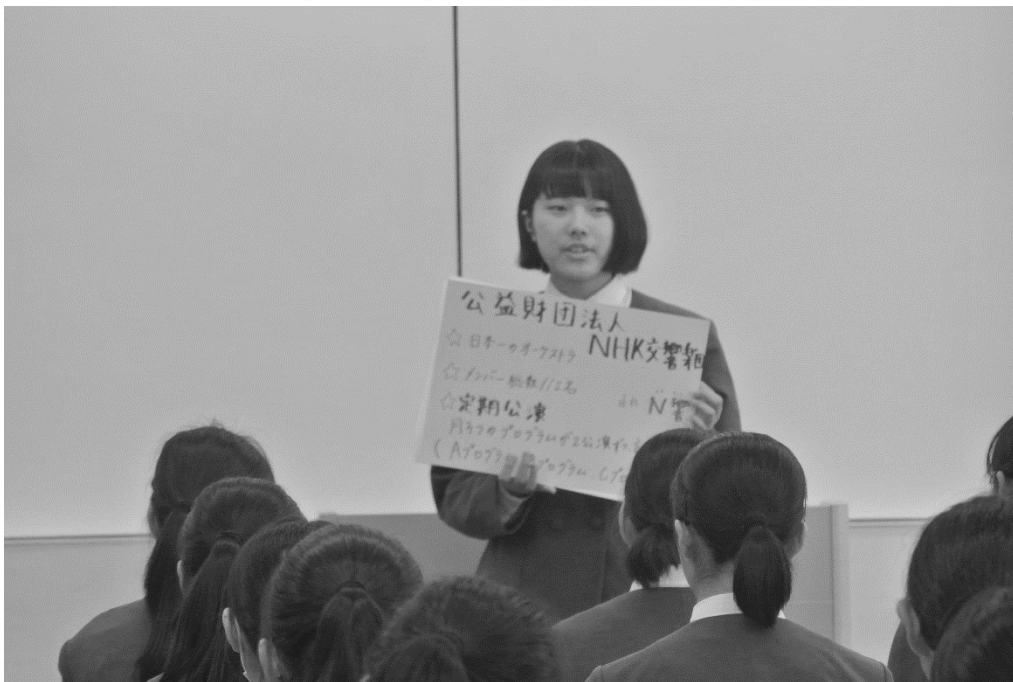 公益財団法人
NHK交響楽団
☆日本一のオーケストラ
☆メンバー総数112名
N響
☆定期公演
月3つのプログラムが2公演ずつ
(Aプログラ プログラム、Cプロ